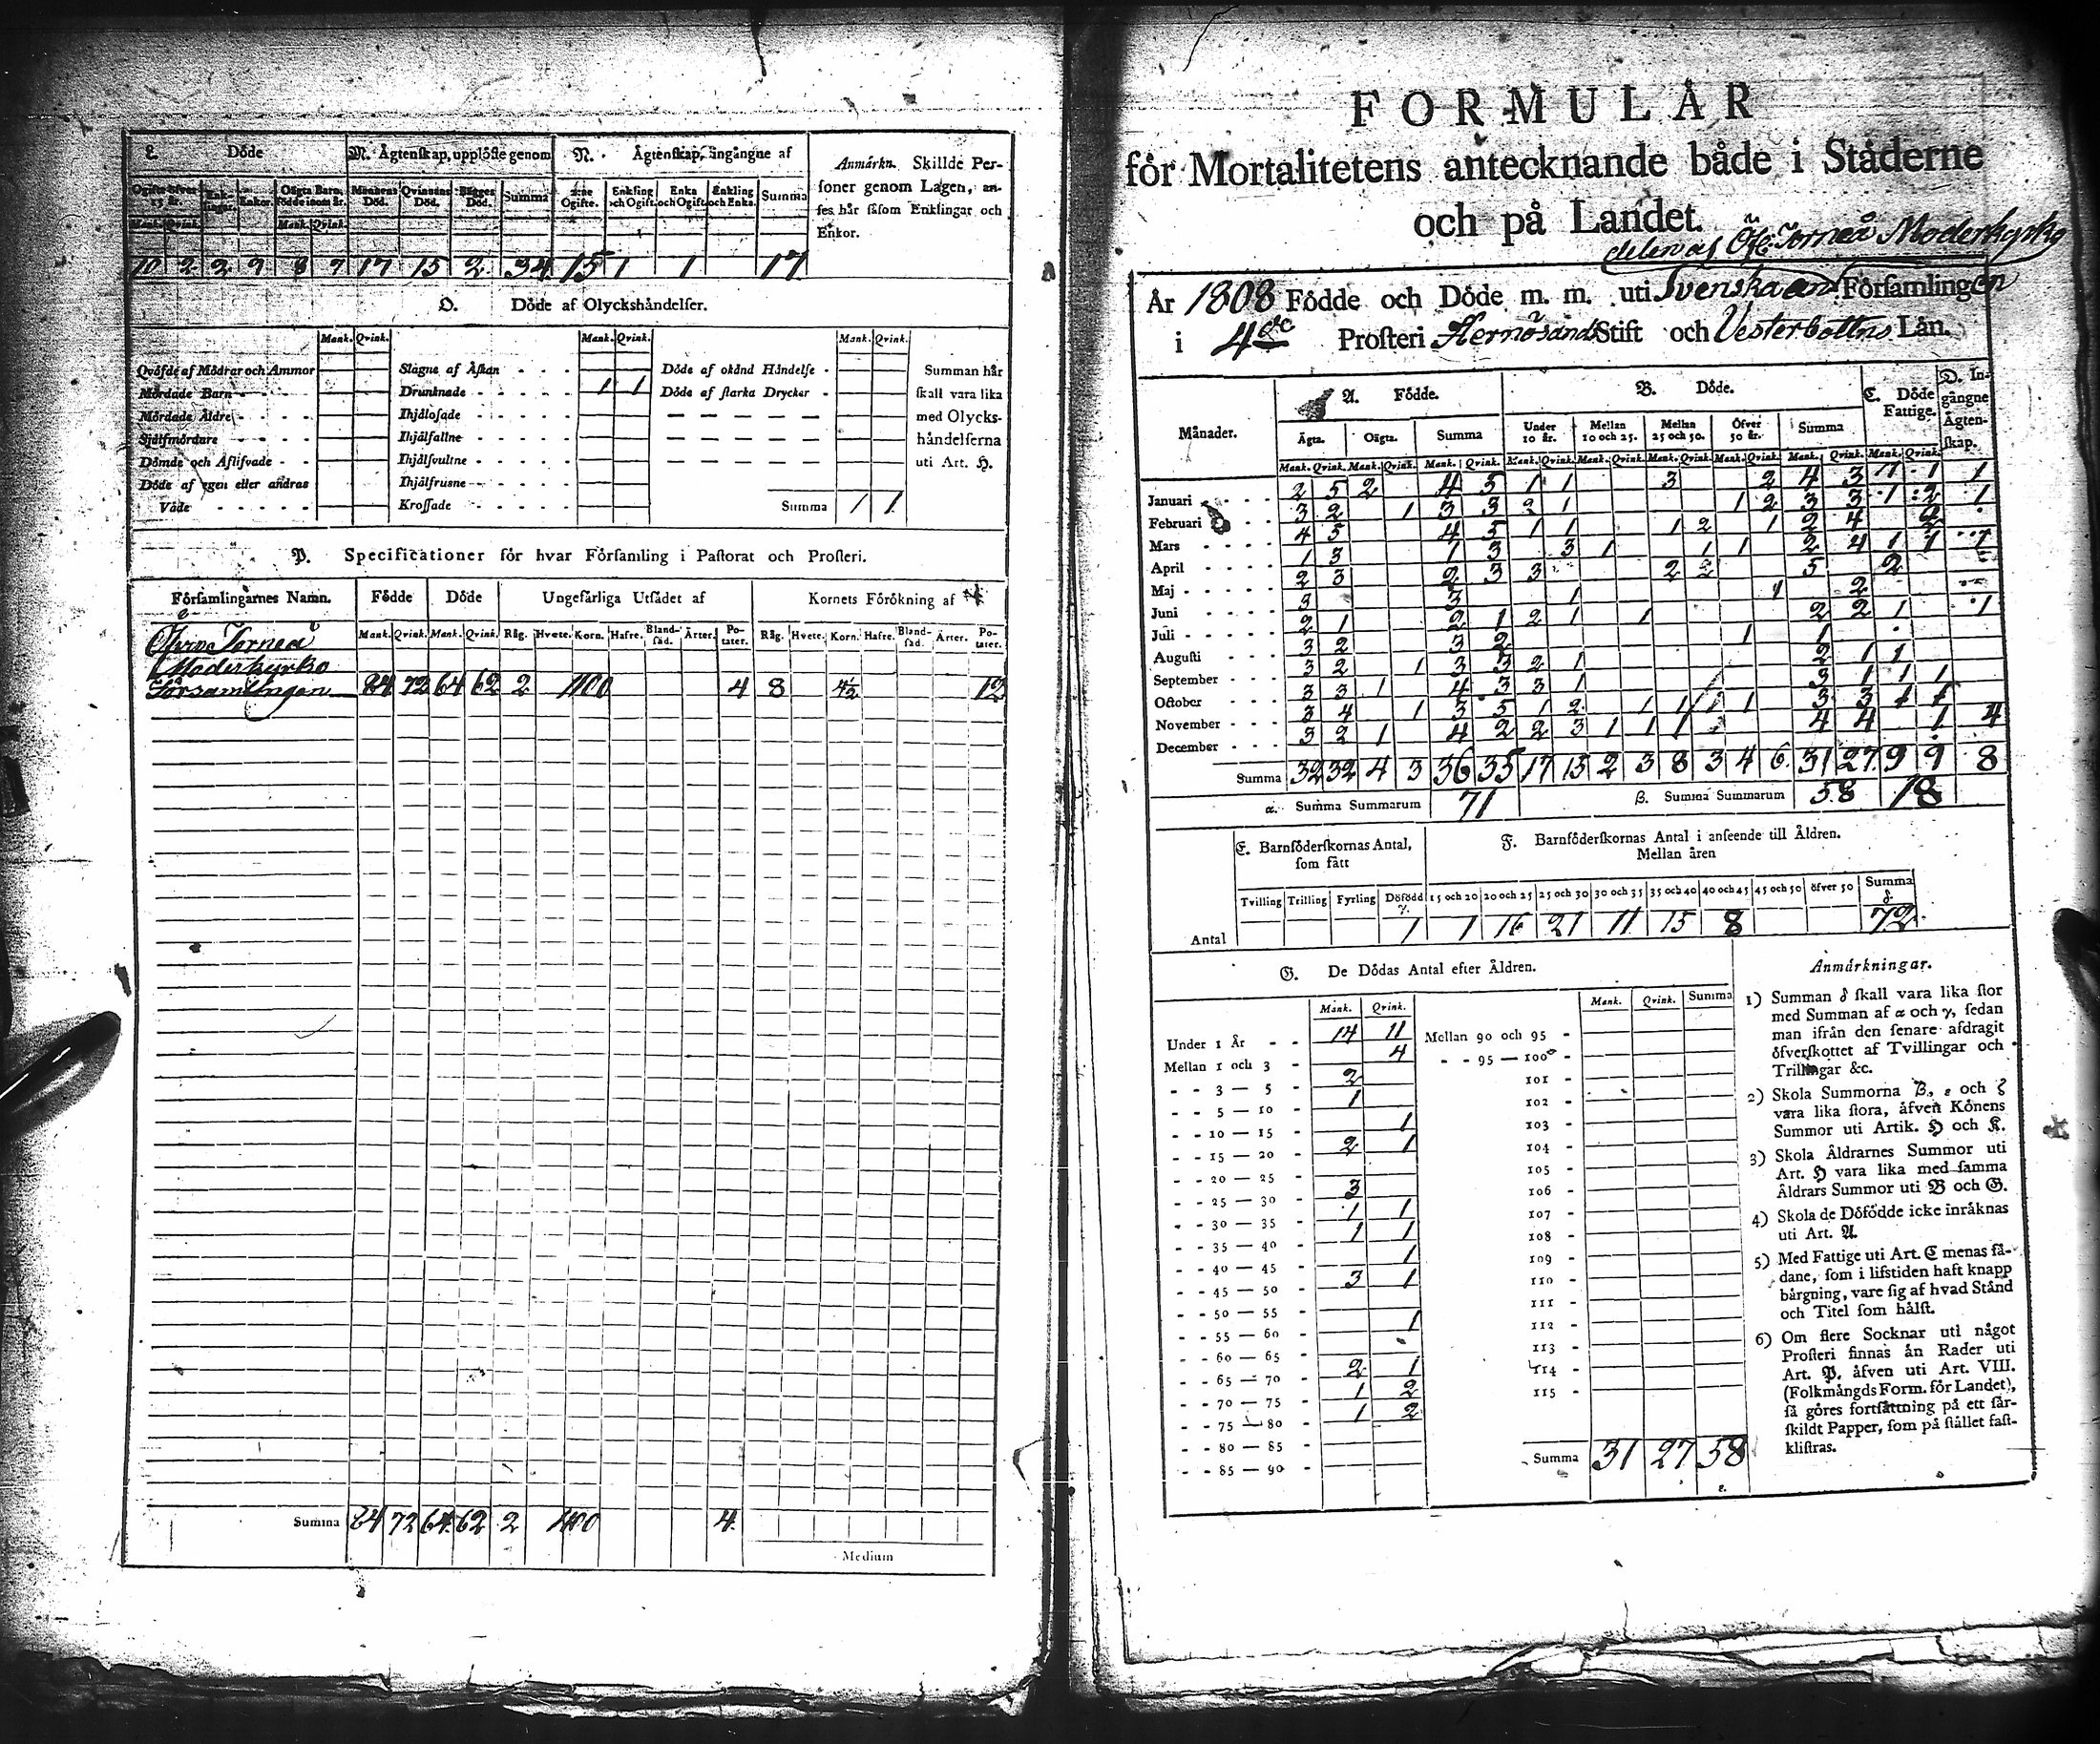 L. Döde
M. Ägtenskap, upplöste genom
N. Ägtenskap, ingångne af
Anmärkn. Skillde Per-
soner genom Lagen, an-
ses här såsom Enklingar och
Enkor.
Ogifte öfver 15 år. Enk-lingar. Enkor. Oägta Barn, födde inom år. Mannens Död. Qvinnans Död. Bägges Död. Summa 2:ne Ogifte. Enkling och Ogift. Enka och Ogift. Enkling och Enka. Summa
Mank. Qvink. Mank. Qvink.
10 2 2 9 8 7 17 15 2 34 15 1 1 17
O. Döde af Olyckshändelser.
Mank. Qvink. Mank. Qvink. Mank. Qvink.
Qväfde af Mödrar och Ammor Slagne af Åskan - - - Döde af okänd Händelse - Summan här
Mördade Barn - - - Drunknade - - - - 1 1 Döde af starka Drycker - skall vara lika
Mördade Äldre - - - Ihjälosade - - - - med Olycks-
Självmördare - - - Ihjälfallne - - - - händelserna
Dömde och Aflifvade - - Ihjälsvultne - - - - uti Art. H.
Döde af egen eller andras Ihjälfrusne - - - -
Våde - - - - - Krossade - - - - - Summa 1 1
P. Specificationer för hvar Församling i Pastorat och Prosteri.
Församlingarnes Namn. Födde Döde Ungefärliga Utsädet af Kornets Förökning af
Mank. Qvink. Mank. Qvink. Råg. Hvete. Korn. Hafre. Bland-säd. Ärter. Po-tater. Råg. Hvete. Korn. Hafre. Bland-säd. Ärter. Po-tater.
Öfver Torneå
Moderkyrko
Församlingen 84 72 64 62 2 400 4 8 4½ 12
Summa 84 72 64 62 2 400 4
Medium
FORMULÄR
för Mortalitetens antecknande både i Städerne
och på Landet.
delen af Öfv. Torneå Moderkyrko
År 1808 Födde och Döde m. m. uti Svenska Församlingen
i 4de Prosteri Hernösands Stift och Vesterbottns Län.
Månader. A. Födde. B. Döde. C. Döde Fattige. D. In-gångne Ägten-skap.
Ägta. Oägta. Summa Under 10 år. Mellan 10 och 25. Mellan 25 och 50. Öfver 50 år. Summa
Mank. Qvink. Mank. Qvink. Mank. Qvink. Mank. Qvink. Mank. Qvink. Mank. Qvink. Mank. Qvink. Mank. Qvink. Mank. Qvink.
Januari - - - 2 5 2 4 5 1 1 3 2 4 3 1 1 1
Februari - - 3 2 1 3 3 2 1 1 2 3 3 1 2 1
Mars - - - - 4 5 4 5 1 1 1 2 1 2 4 2
April - - - - 1 3 1 3 3 1 1 1 2 4 1 1 1
Maj - - - - 2 3 2 3 3 2 2 5 2
Juni - - - - 3 3 1 1 2
Juli - - - - 2 1 2 1 2 1 1 2 2 1 1
Augusti - - - 3 2 3 2 1 1
September - - - 3 2 1 3 3 2 1 2 1 1
October - - - 3 3 1 4 3 3 1 3 1 1 1
November - - - 3 4 1 3 5 1 2 1 1 1 1 3 3 1 1
December - - - 3 2 1 4 2 2 3 1 1 1 4 4 1 4
Summa 32 32 4 3 36 35 17 15 2 3 8 3 4 6 31 27 9 9 8
α. Summa Summarum 71 β. Summa Summarum 58 18
E. Barnföderskornas Antal, som fått
F. Barnföderskornas Antal i anseende till Åldren.
Mellan åren
Tvilling Trilling Fyrling Dödfödd γ. 15 och 20 20 och 25 25 och 30 30 och 35 35 och 40 40 och 45 45 och 50 öfver 50 Summa δ.
Antal 1 1 16 21 11 15 8 72
G. De Dödas Antal efter Åldren.
Mank. Qvink. Mank. Qvink. Summa
Under 1 År - - 14 11 Mellan 90 och 95 -
Mellan 1 och 3 - 4 - - 95 — 100 -
- - 3 — 5 - 2 101 -
- - 5 — 10 - 1 102 -
- - 10 — 15 - 1 103 -
- - 15 — 20 - 2 1 104 -
- - 20 — 25 - 105 -
- - 25 — 30 - 3 106 -
- - 30 — 35 - 1 1 107 -
- - 35 — 40 - 1 1 108 -
- - 40 — 45 - 1 109 -
- - 45 — 50 - 3 1 110 -
- - 50 — 55 - 111 -
- - 55 — 60 - 1 112 -
- - 60 — 65 - 113 -
- - 65 — 70 - 2 1 114 -
- - 70 — 75 - 1 2 115 -
- - 75 — 80 - 1 2
- - 80 — 85 -
- - 85 — 90 -
Summa 31 27 58
Anmärkningar.
1) Summan δ skall vara lika stor
med Summan af α och γ, sedan
man ifrån den senare afdragit
öfverskottet af Tvillingar och
Trillingar &c.
2) Skola Summorna β, ε och ζ
vara lika stora, äfven Könens
Summor uti Artik. H och K.
3) Skola Åldrarnes Summor uti
Art. H vara lika med samma
Åldrars Summor uti B och G.
4) Skola de Döfödde icke inräknas
uti Art. A.
5) Med Fattige uti Art. C menas så-
dane, som i lifstiden haft knapp
bärgning, vare sig af hvad Stånd
och Titel som hälst.
6) Om flere Socknar uti något
Prosteri finnas än Rader uti
Art. P. äfven uti Art. VIII.
(Folkmängds Form. för Landet),
så göres fortsättning på ett sär-
skildt Papper, som på stället fast-
klistras.